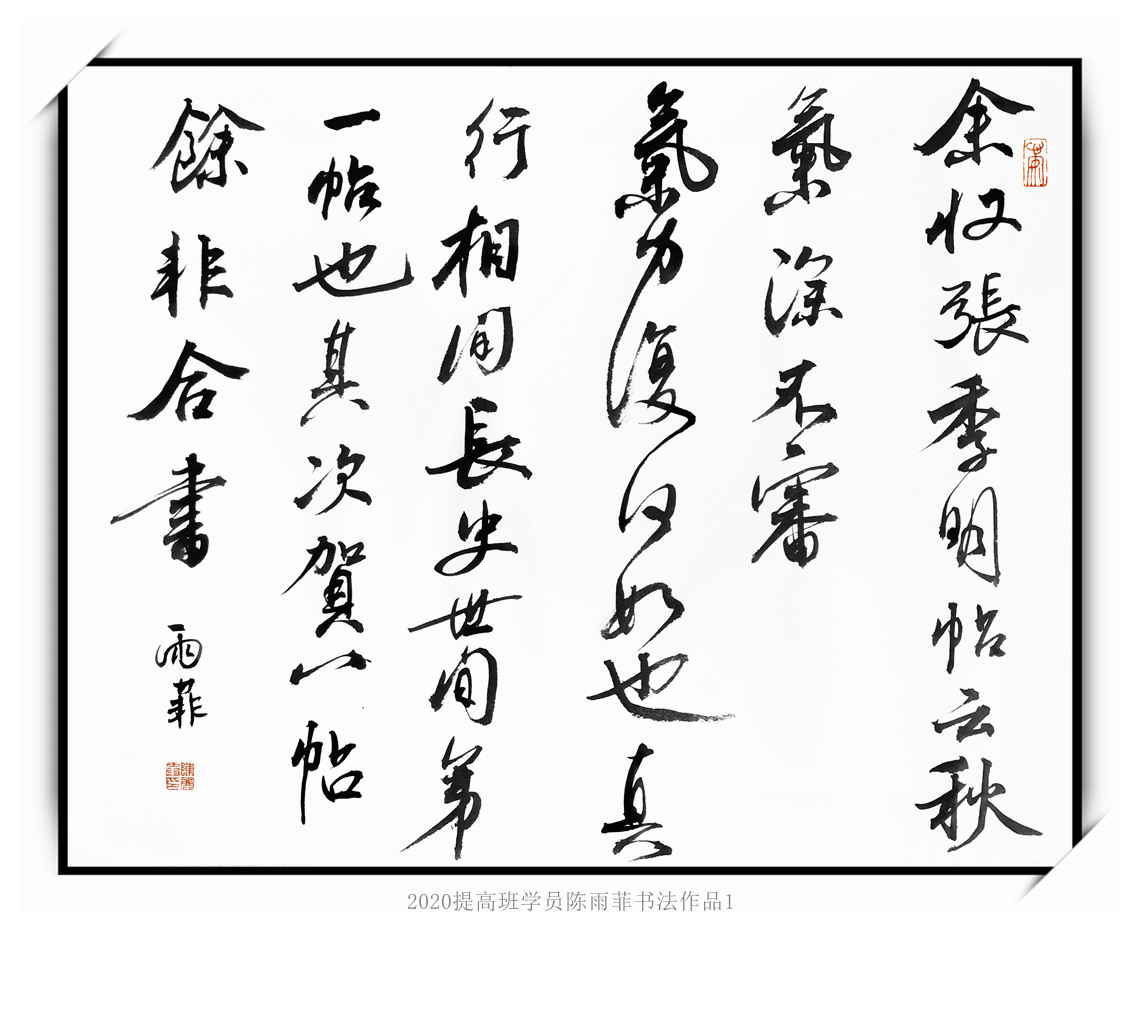 余收張季明帖云秋
氣深不審
氣力復何如也真
行相間長史世間第
一帖也其次賀八帖
餘非合書
雨菲
2020提高班学员陈雨菲书法作品1